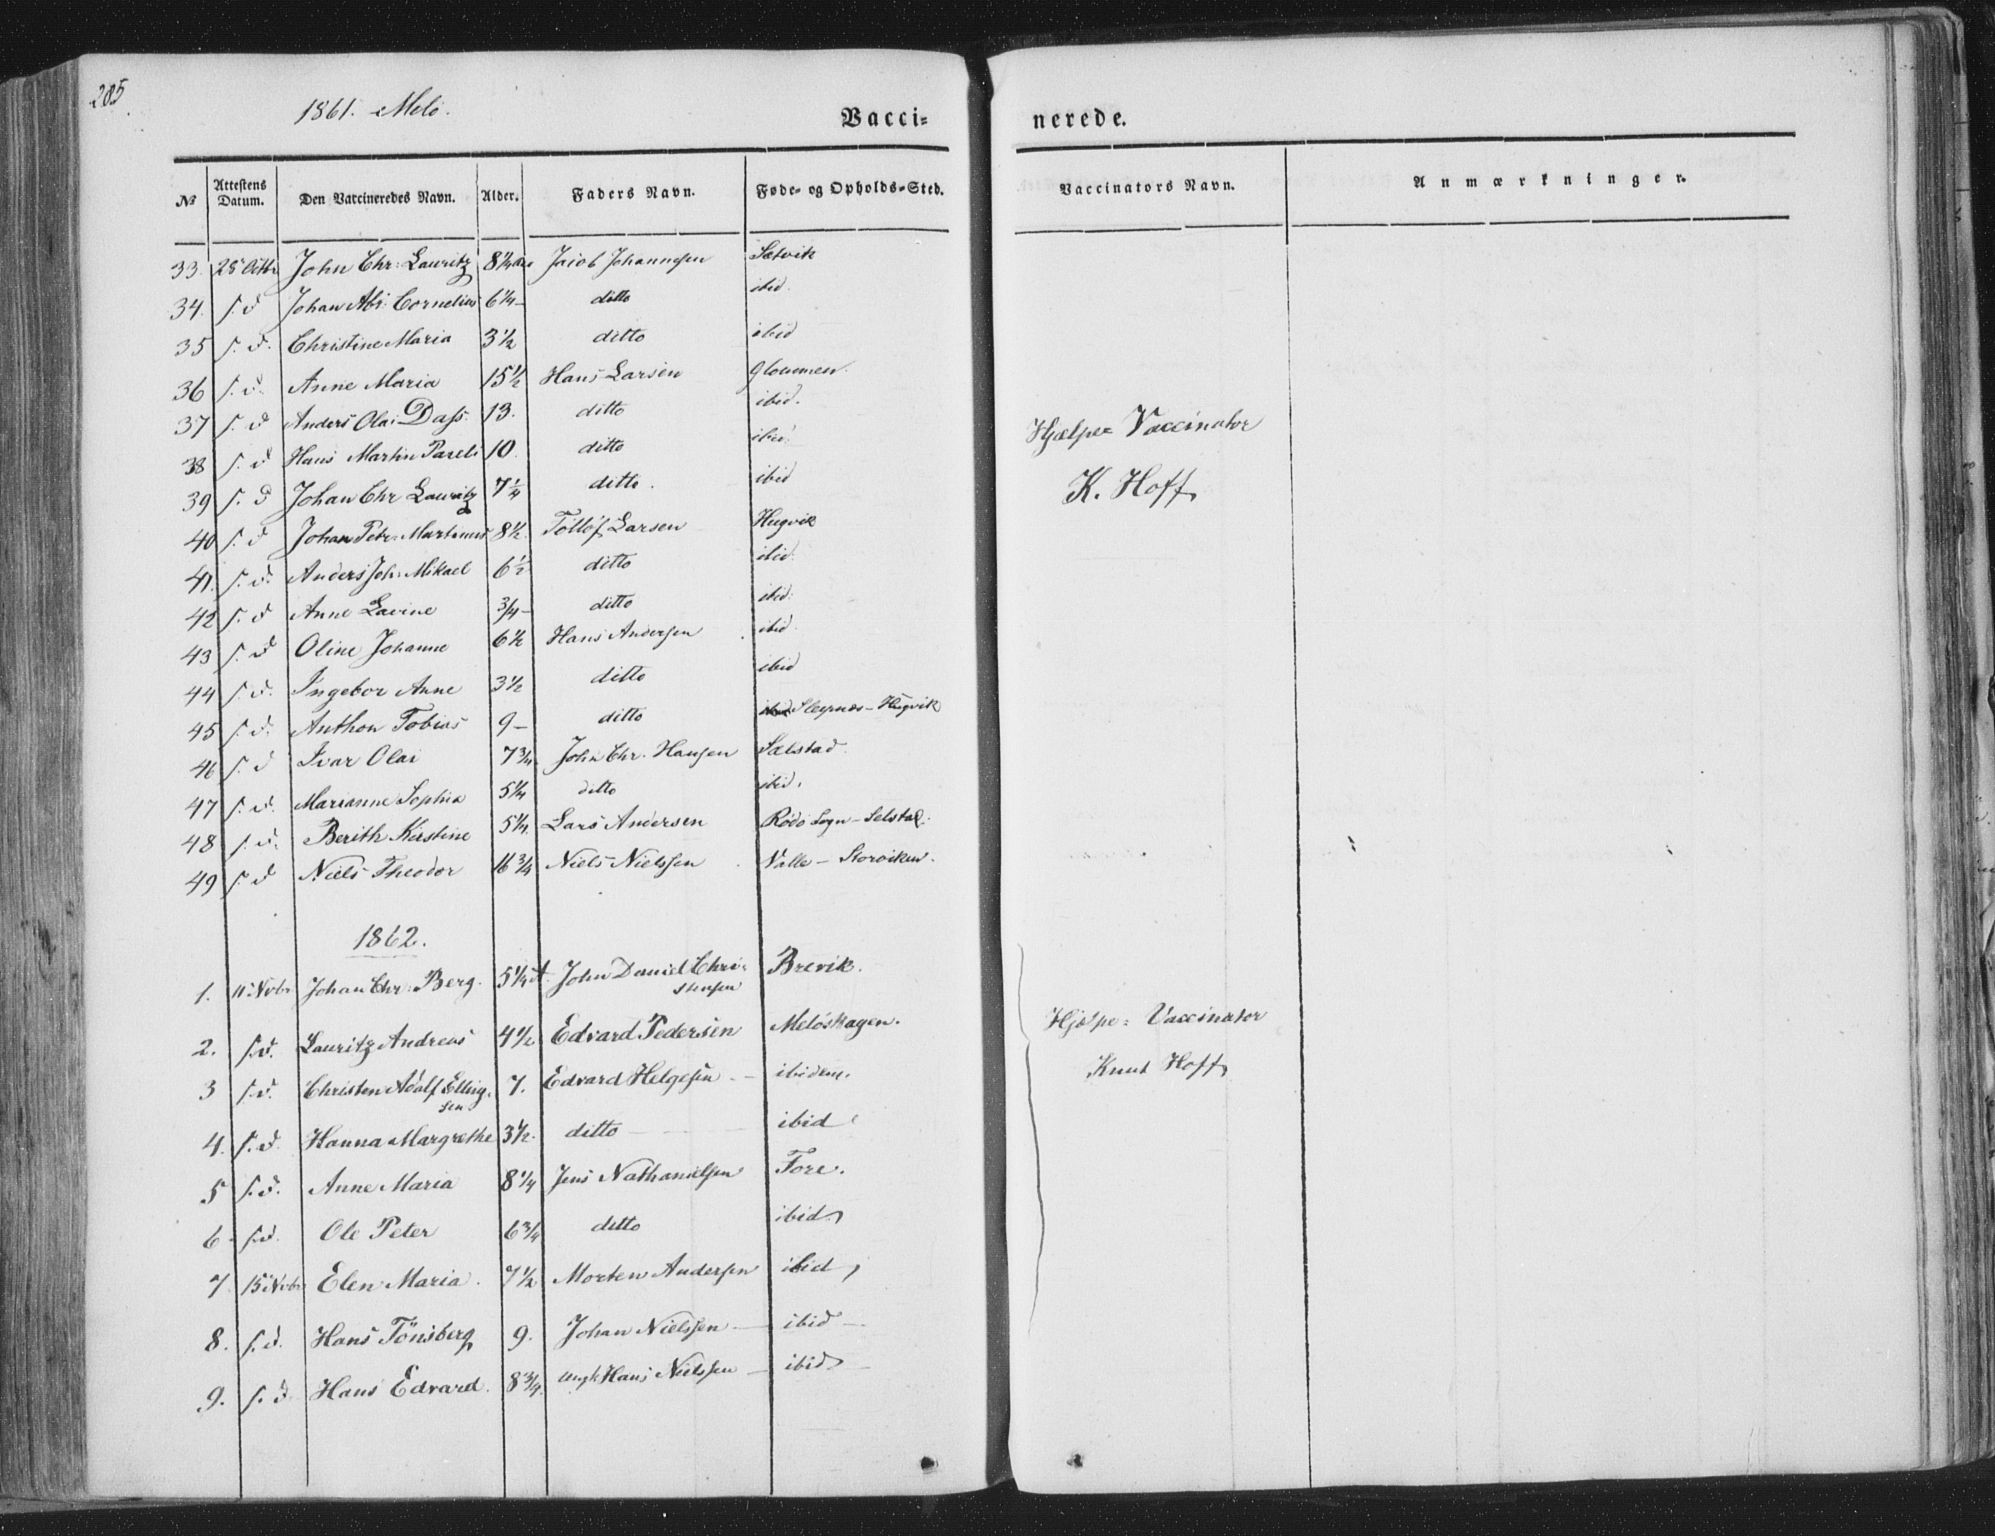 205.
1861. Melö.
Vacci= nerede.
№ Attestens Datum. Den Vaccineredes Navn. Alder. Faders Navn. Føde- og Opholds-Sted. Vaccinators Navn. Anmærkninger.
33. 25 Octbr John Chr: Lauritz 8¼ Jacob Johannesen Sætvik
34. s. d Johan Abr. Cornelius 6¼ – ditto ibid.
35 s. d. Christine Maria 3½ ditto ibid
36 s. d. Anne Maria 15½ Hans Larsen Gloummen.
37 s. d Anders Olai Dass. 13. ditto ibid.
38 s. d Hans Martin Pareli 10. ditto ibid.
39 s. d Johan Chr Lauritz 7¼ ditto. ibid
40 s. d Johan Petr. Martinus 8½. Tollöf Larsen Hugvik
41. s. d. Anders Joh: Mikael 6½ ditto ibid.
42 s. d Anne Lavine ¾ – ditto ibid.
43 s. d Oline Johanne 6½ Hans Andersen ibid.
44 s. d. Ingebor Anne 3½ ditto ibid
45 s. d. Anthon Tobias 9 – ditto Sleynæs – Hugvik
46 s. d Ivar Olai 7¾ John Chr. Hansen Sælstad.
47 s. d. Marianne Sophia 5¼ ditto ibid.
48 s. d. Berith Kirstine 5¼. Lars Andersen Rödö Sogn – Selstad.
49 s. d Niels Theodor 16¾ Niels Nielssen Valle – Storviken.
Hjælpe= Vaccinator
K. Hoff
1862.
1. 11 Nvbr Johan Chr: Berg. 5¼ A. John Daniel Chri-
stensen Brevik.
2. s. d. Lauritz Andreas 4½ Edvard Pedersen Melöskagen.
3 s. d. Christen Adolf Elling-
sen 7. Edvard Helgesen – ibidem.
4. s. d. Hanna Margrethe 3½. ditto – ibid
5 s. d. Anne Maria 8¼ Jens Nathanielsen Fore.
6 – s. d. Ole Peter 6¾ ditto ibid
7 15 Nvbr Elen Maria. 7½ Morten Andersen ibid,
8. s. d. Hans Tönsberg 9. Johan Nielssen – ibid –
9. s. d. Hans Edvard. 8¾. Hans Nielssen – ibid –
Hjelpe= Vaccinator
Knut Hoff